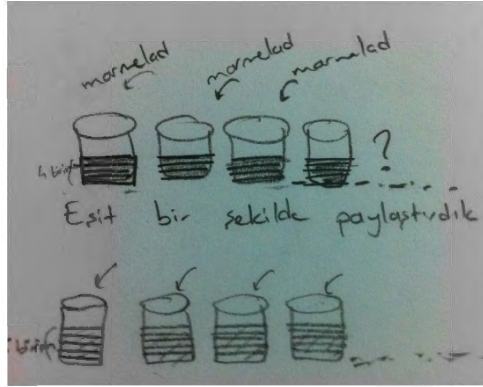 marmelad marmelad marmelad
?
4 birim
Eşit bir şekilde paylaştırdık
birim